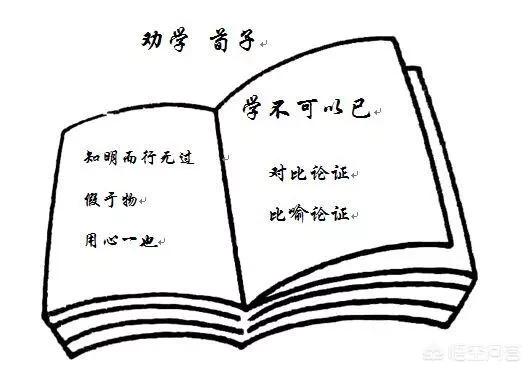 劝学 荀子
知明而行无过
假于物
用心一也
学不可以已
对比论证
比喻论证
悟空问答